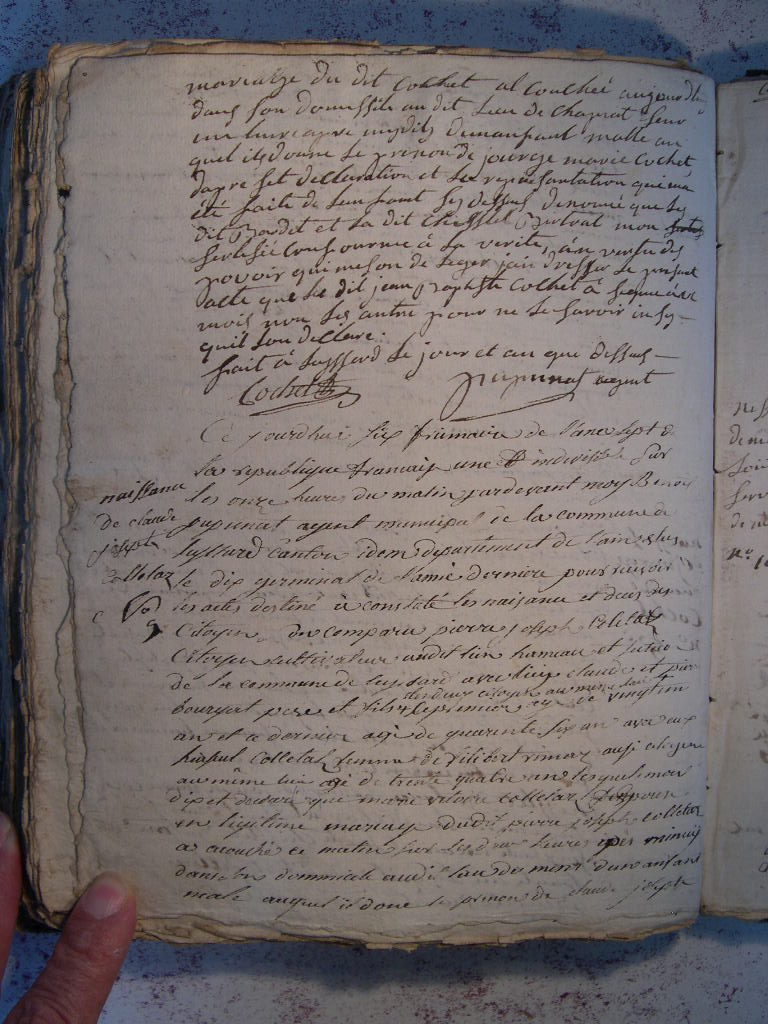 mariaige du dit Cochet al Couchée aujourdhy
dans son domissile au dit lieu de Chaprat
une heure apre mydity dun anfant malle au
quel ils doune le prenon de jeorge marie Cochet
dapre set declaration et la repraisantation qui ma
été faite de lanfant sy dessus denomé que les
dit Bardet et la dit mon
sertifié Confourme à la verité, an vertu des
povoir qui me son delleger jai dressér le present
acte que le dit jean Baptiste Cochet à signé avec
mois non les autre pour ne le savoir insy
quil lon declare.
fait à Luyssard le jour et an que dessus
Cochet agent
Ce jourdhui six frimaire de lance sept de
la republique francais une et indivisible sur
les onze heures du matin pardevant moy Benoi
pupunat agent municipal de la commune de
Canton idem departement de lain elus
le dix germinal de lannée derniere pour recevoir
les actes destiné à constaté les naisance et deces des
Citoyen, on comparu pierre joseph Colletaz
Citoyen cultivateur audit lieu hameau et
de la commune de Luyssard avec luis claude et pierre
les deux citoyen au meme lieu
bourgat pere et fils le premier age de vingtun
an et ce dernier agé de quarente six an avec eux
Colletaz femme de filibert aussi citoyene
au même lieu agé de trente quatre ans lesquels mon
dit et declaré que marie Colletaz son epouse
en legitime mariage dudit pierre joseph Colletaz
a acouché ce matin sur les deux heures apres minuis
dans son dommicile audit lieu dun anfans
male auquel il done le prenon de claude joseph
naissance
de claude
joseph
Colletaz